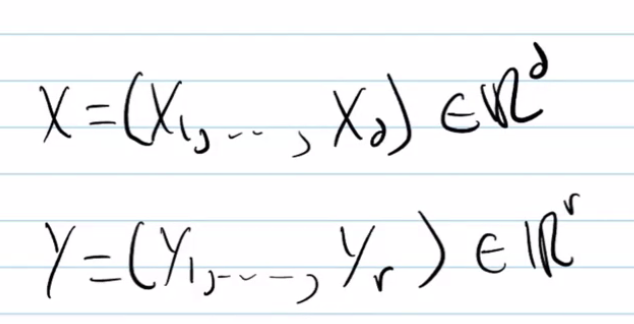 X = (X₁, ..., X_d) ∈ ℝ^d
Y = (Y₁, ..., Y_r) ∈ ℝ^r